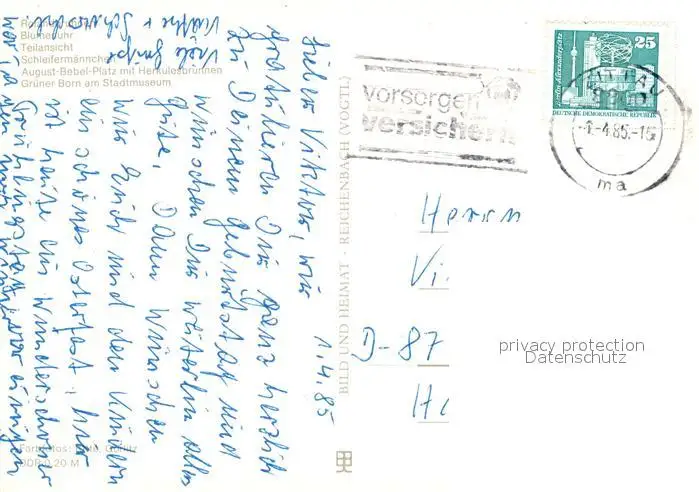 Blumenuhr
Teilansicht
Schleifermännchen
August-Bebel-Platz mit Herkulesbrunnen
Grüner Born am Stadtmuseum
1.4.85
Lieber Viktor, wir
gratulieren Dir ganz herzlich
zu Deinem Geburtstag und
wünschen Dir weiterhin alles
Gute. Dann wünschen
wir Euch und den Kindern
ein schönes Osterfest, hier
ist heute ein wunderschöner
Frühlingstag
Viele Grüße
BILD UND HEIMAT · REICHENBACH (VOGTL)
DDR 0,20 M
vorsorgen
versichern
25
Berlin, Alexanderplatz
DEUTSCHE DEMOKRATISCHE REPUBLIK
ZITTAU
-1.-4.85.-15
ma
Herrn
Vi.
D-87
privacy protection
Datenschutz